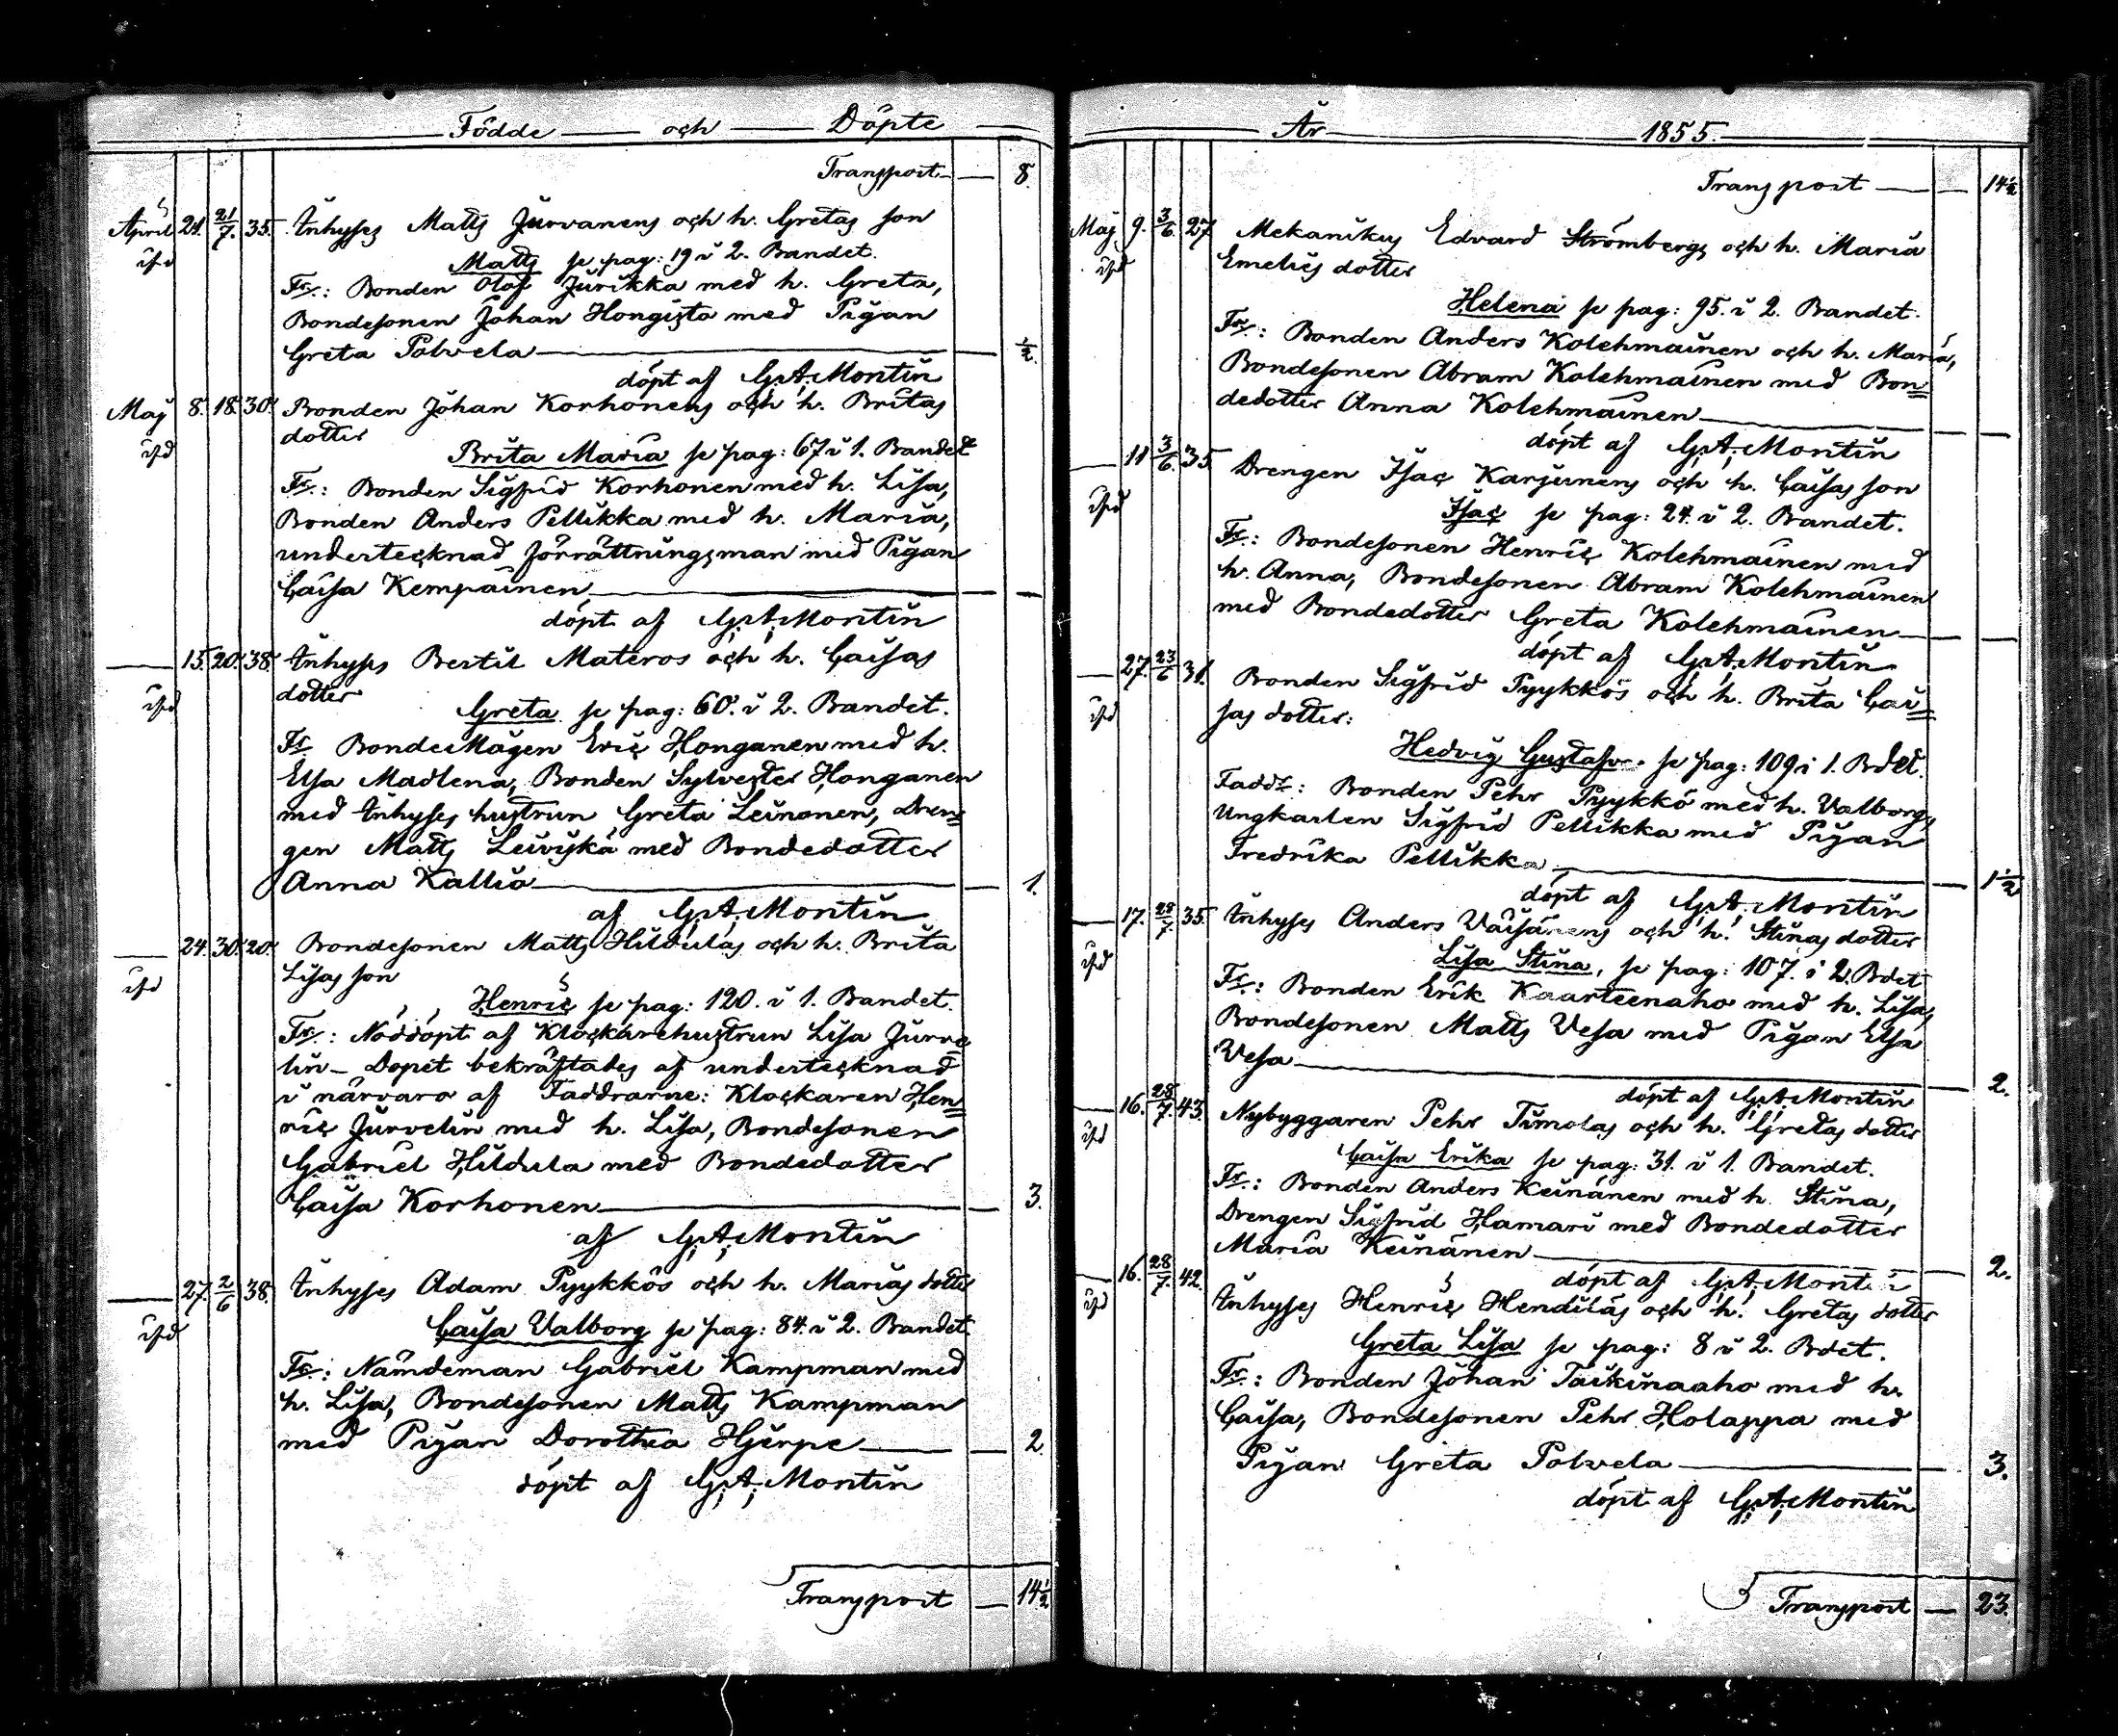 Födde och Döpte
Transport 8.
April 21. 21/7. 35. Inhyses Matts Jurvanens och h. Gretas son
Matts se pag: 19 i 2. Bandet.
Fr.: Bonden Olof Jurikka med h. Greta,
Bondesonen Johan Hongisto med Pigan
Greta Polvela 1/2.
döpt af G.A. Montin
Maj 8. 18. 30. Bonden Johan Korhonens och h. Britas
dotter
Brita Maria se pag: 67 i 1. Bandet
Fr.: Bonden Sigfrid Korhonen med h. Lisa,
Bonden Anders Pellikka med h. Maria,
undertecknad förrättningsman med Pigan
Caisa Kempainen
döpt af G.A. Montin
15. 20. 38. Inhyses Bertil Materos och h. Caisas
dotter
Greta se pag: 60. i 2. Bandet.
Fr. Bondemågen Eric Honganen med h.
Elsa Madlena, Bonden Sylvester Honganen
med Inhyses hustrun Greta Leinonen, Dren=
gen Matts Leiviskä med Bondedotter
Anna Kallio 1.
af G.A. Montin
24. 30. 20. Bondesonen Matts Hildulas och h. Brita
Lisas son
Henric se pag: 120. i 1. Bandet.
Fr.: Nöddöpt af Klockarehustrun Lisa Jurve=
lin – Dopet bekräftades af undertecknad
i närvaro af Faddrarne: Klockaren Hen=
ric Jurvelin med h. Lisa, Bondesonen
Gabriel Hildula med Bondedotter
Caisa Korhonen 3.
af G.A. Montin
27. 2/6 38. Inhyses Adam Pyykkös och h. Marias dotter
Caisa Valborg se pag: 84. i 2. Bandet.
Fr.: Nämdeman Gabriel Kampman med
h. Lisa, Bondesonen Matts Kampman
med Pigan Dorothea Hjerpe 2.
döpt af G.A. Montin
Transport 14 1/2
År 1855.
Transport 14 1/2
Maj 9. 3/6. 27 Mekanikus Edvard Strömbergs och h. Maria
Emelies dotter
Helena se pag: 95. i 2. Bandet.
Fr.: Bonden Anders Kolehmainen och h. Maria,
Bondesonen Abram Kolehmainen med Bon=
dedotter Anna Kolehmainen
döpt af G.A. Montin
11 3/6. 35. Drengen Isac Karjunens och h. Caisas son
Isac se pag: 24. i 2. Bandet.
Fr.: Bondesonen Henric Kolehmainen med
h. Anna, Bondesonen Abram Kolehmainen
med Bondedotter Greta Kolehmainen
döpt af G.A. Montin
27. 23/6 31. Bonden Sigfrid Pyykkös och h. Brita Cai=
sas dotter:
Hedvig Gustafva se pag: 109 i 1. Bdet.
Faddr: Bonden Pehr Pyykkö med h. Valborg,
Ungkarlen Sigfrid Pellikka med Pigan
Fredrika Pellikka 1 1/2
döpt af G.A. Montin
17. 28/7. 35. Inhyses Anders Väisänens och h. Stinas dotter
Lisa Stina, se pag: 107. i 2. Bdet
Fr.: Bonden Erik Kaarteenaho med h. Lisa,
Bondesonen Matts Vesa med Pigan Elsa
Vesa 2.
döpt af G.A. Montin
16. 28/7. 43. Nybyggaren Pehr Timolas och h. Gretas dotter
Caisa Erika se pag: 31. i 1. Bandet.
Fr.: Bonden Anders Keinänen med h. Stina,
Drengen Sigfrid Hamari med Bondedotter
Maria Keinänen 2.
döpt af G.A. Montin
16. 28/7. 42. Inhyses Henric Hendiläs och h. Gretas dotter
Greta Lisa se pag: 8 i 2. Bdet.
Fr.: Bonden Johan Taikinaaho med h.
Caisa, Bondesonen Pehr Holappa med
Pigan Greta Polvela 3.
döpt af G.A. Montin
Transport 23.